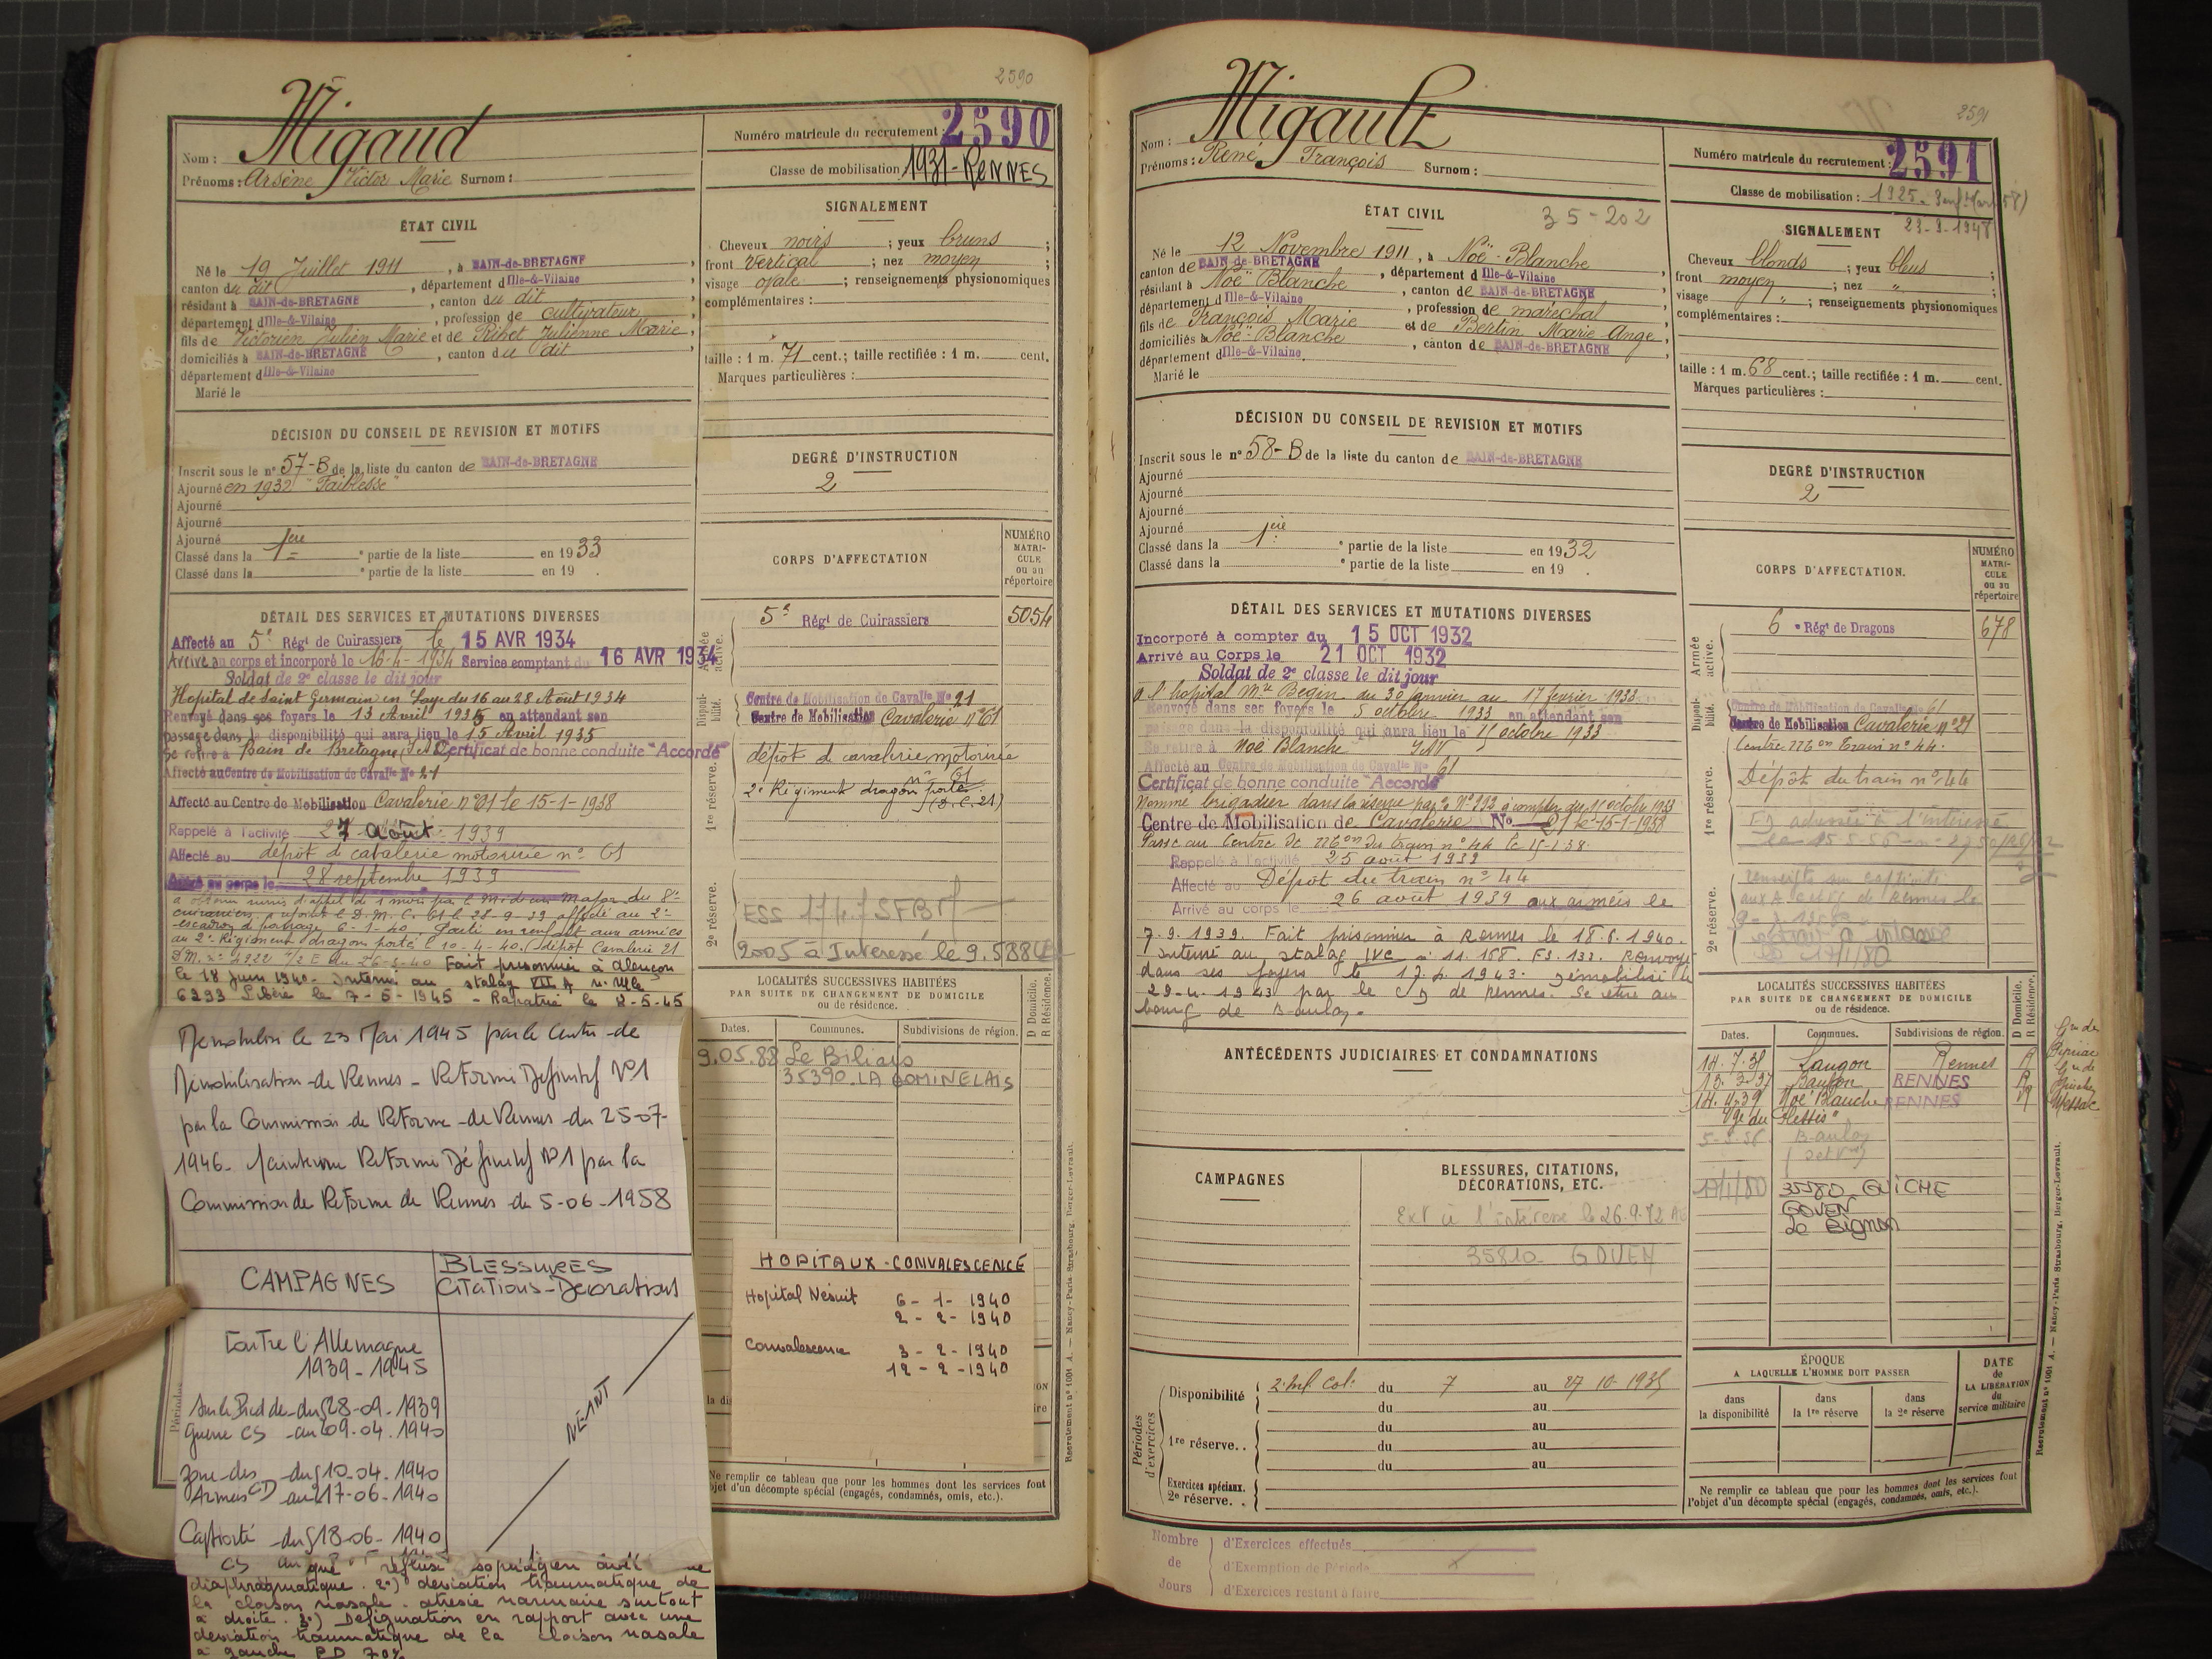 2590
Nom : Migaud
Prénoms : Arsène Victor Marie Surnom :
Numéro matricule du recrutement : 2590
Classe de mobilisation 1931-RENNES
ÉTAT CIVIL
Né le 19 Juillet 1911, à BAIN-de-BRETAGNE,
canton du dit, département d Ille-&-Vilaine
résidant à BAIN-de-BRETAGNE, canton du dit
département d Ille-&-Vilaine, profession de cultivateur
fils de Victorien Julien Marie et de Ribet Julienne Marie,
domiciliés à BAIN-de-BRETAGNE, canton du dit
département d Ille-&-Vilaine
Marié le
SIGNALEMENT
Cheveux noirs ; yeux bruns ;
front vertical ; nez moyen ;
visage ovale ; renseignements physionomiques
complémentaires :
taille : 1 m. 71 cent.; taille rectifiée : 1 m. cent.
Marques particulières :
DÉCISION DU CONSEIL DE REVISION ET MOTIFS
Inscrit sous le n° 57-B de la liste du canton de BAIN-de-BRETAGNE
Ajourné en 1932 "Faiblesse"
Ajourné
Ajourné
Ajourné
Classé dans la 1ère partie de la liste en 1933
Classé dans la e partie de la liste en 19 .
DEGRÉ D'INSTRUCTION
2
CORPS D'AFFECTATION
NUMÉRO MATRICULE ou au répertoire
Armée active.
5e Régt de Cuirassiers 5054
Disponibilité.
Centre de Mobilisation de Cavalie No 21
Centre de Mobilisation Cavalerie n°61
1re réserve.
dépôt de cavalerie motorisée
n° 61
2e Régiment dragon porté
(D.C.21)
2e réserve.
2005 à Interessé le 9.5.88
DÉTAIL DES SERVICES ET MUTATIONS DIVERSES
Affecté au 5e Régt de Cuirassiers le 15 AVR 1934
Arrivé au corps et incorporé le 16-4-1934 Service comptant du 16 AVR 1934
Soldat de 2e classe le dit jour
Hopital de Saint Germain en Laye du 16 au 28 Août 1934
Renvoyé dans ses foyers le 13 Avril 1935 en attendant son
passage dans la disponibilité qui aura lieu le 15 Avril 1935
Se retire à Bain de Bretagne Certificat de bonne conduite "Accordé"
Affecté au Centre de Mobilisation de Cavalie No 21
Affecté au Centre de Mobilisation Cavalerie n°61 le 15-1-1938
Rappelé à l'activité 27 août 1939
Affecté au dépôt de cavalerie motorisée n° 61
Arrivé au corps le 28 septembre 1939
escadron de partage 6-1-40. Parti en renfort aux armées
au 2e Régiment dragon porté le 10-4-40. (dépôt Cavalerie 21
Fait prisonnier à Alençon
le 18 Juin 1940. Interné au stalag VII A n° Mle
6293 Libéré le 7-5-1945 - Rapatrié le 12-5-45
Démobilisé le 23 Mai 1945 par le Centre de
Démobilisation de Rennes - Réformé Définitif N°1
par la Commission de Réforme de Rennes du 25-07-
1946. Maintenu Réformé Définitif N°1 par la
Commission de Réforme de Rennes du 5-06-1958
CAMPAGNES
BLESSURES
Citations-Décorations
Contre l'Allemagne
1939-1945
Sur le Pied de du 28-09-1939
Guerre CS au 09.04.1940
Zone des du 10-04-1940
Armées CD au 17-06-1940
Captivité du 18-06-1940
CS au
NÉANT
diaphragmatique. 2°) déviation traumatique de
la cloison nasale. atrésie narinaire surtout
à droite. 3°) Défiguration en rapport avec une
déviation traumatique de la cloison nasale
à gauche
LOCALITÉS SUCCESSIVES HABITÉES
PAR SUITE DE CHANGEMENT DE DOMICILE
ou de résidence.
D Domicile.
R Résidence.
Dates. Communes. Subdivisions de région.
9.05.88 Le Biliais
35390 LA DOMINELAIS
HOPITAUX-CONVALESCENCE
Hopital 6-1-1940
2-2-1940
Convalescence 3-2-1940
12-2-1940
Ne remplir ce tableau que pour les hommes dont les services font
objet d'un décompte spécial (engagés, condamnés, omis, etc.).
Recrutement n° 1001 A. — Nancy-Paris-Strasbourg, Berger-Levrault.
2591
Nom : Migault
Prénoms : René François Surnom :
Numéro matricule du recrutement : 2591
Classe de mobilisation : 1925
23-9-1948
ÉTAT CIVIL
35-202
Né le 12 Novembre 1911, à Noë-Blanche
canton de BAIN-de-BRETAGNE, département d Ille-&-Vilaine
résidant à Noë Blanche, canton de BAIN-de-BRETAGNE
département d Ille-&-Vilaine, profession de maréchal
fils de François Marie et de Bertin Marie Ange,
domiciliés à Noë-Blanche, canton de BAIN-de-BRETAGNE
département d Ille-&-Vilaine.
Marié le
SIGNALEMENT
Cheveux blonds ; yeux bleus ;
front moyen ; nez " ;
visage " ; renseignements physionomiques
complémentaires :
taille : 1 m. 68 cent.; taille rectifiée : 1 m. cent.
Marques particulières :
DÉCISION DU CONSEIL DE REVISION ET MOTIFS
Inscrit sous le n° 58-B de la liste du canton de BAIN-de-BRETAGNE
Ajourné
Ajourné
Ajourné
Ajourné
Classé dans la 1ère partie de la liste en 1932
Classé dans la e partie de la liste en 19 .
DEGRÉ D'INSTRUCTION
2
CORPS D'AFFECTATION.
NUMÉRO MATRICULE ou au répertoire
Armée active.
6e Régt de Dragons 678
Disponibilité.
Centre de Mobilisation de Cavalie No 61
Centre de Mobilisation Cavalerie n°21
Centre Mon Train n° 44.
1re réserve.
Dépôt du train n° 44
2e réserve.
DÉTAIL DES SERVICES ET MUTATIONS DIVERSES
Incorporé à compter du 15 OCT 1932
Arrivé au Corps le 21 OCT 1932
Soldat de 2e classe le dit jour
A l'hopital Mre Begin du 30 janvier au 17 février 1933
Renvoyé dans ses foyers le 5 octobre 1933 en attendant son
passage dans la disponibilité qui aura lieu le 15 octobre 1933
Se retire à Noë Blanche
Affecté au Centre de Mobilisation de Cavalie No 61
Certificat de bonne conduite "Accordé"
Nommé brigadier dans la réserve à compter du 15 octobre 1933
Centre de Mobilisation de Cavalerie No 21 le 15-1-1938
Passé au Centre de Mon du train n° 44 le 15-1-38.
Rappelé à l'activité 25 août 1939
Affecté au Dépôt du train n° 44
Arrivé au corps le 26 août 1939 aux armées le
7.9.1939. Fait prisonnier à Rennes le 18.6.1940.
Interné au stalag IVC Renvoyé
dans ses foyers le 1943. Démobilisé le
29-4-1943 par le de Rennes. Se retire au
bourg de Baulon.
ANTÉCÉDENTS JUDICIAIRES ET CONDAMNATIONS
CAMPAGNES
BLESSURES, CITATIONS,
DÉCORATIONS, ETC.
Ext à l'intéressé le 26.9.72
35810 GOVEN
LOCALITÉS SUCCESSIVES HABITÉES
PAR SUITE DE CHANGEMENT DE DOMICILE
ou de résidence.
D Domicile.
R Résidence.
Dates. Communes. Subdivisions de région.
14.7.35 Langon Rennes R
13.3.37 Baulon RENNES R
14.4.39 Noë Blanche RENNES R
Vge du Plessis"
Baulon
17/1/80 35580 GUICHE
GOVEN
Le Bignon
Périodes d'exercices
Disponibilité 2. Inf. Col. du 7 au 27 10-1935
du au
1re réserve. . du au
du au
du au
Exercices spéciaux.
2e réserve. .
ÉPOQUE
A LAQUELLE L'HOMME DOIT PASSER
dans la disponibilité
dans la 1re réserve
dans la 2e réserve
DATE de LA LIBÉRATION du service militaire
Ne remplir ce tableau que pour les hommes dont les services font
l'objet d'un décompte spécial (engagés, condamnés, omis, etc.).
Recrutement n° 1001 A. — Nancy-Paris-Strasbourg, Berger-Levrault.
Nombre de Jours
d'Exercices effectués
d'Exemption de Période x
d'Exercices restant à faire